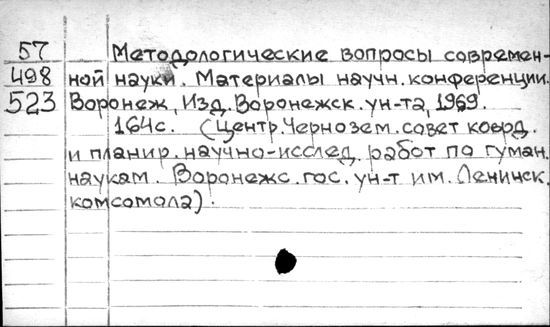 57 Методологические вопросы современ-
498 ной науки. Материалы научн. конференции.
523 Воронеж, Изд. Воронежск. ун-та, 1969.
164с. (Центр. Чернозем. совет коорд.
и планир. научно-исслед. работ по гуман.
наукам. Воронежс. гос. ун-т им. Ленинск.
комсомола).